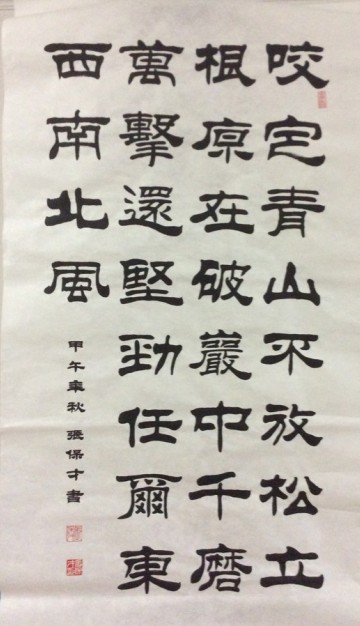 咬定青山不放松立
根原在破巖中千磨
萬擊還堅勁任爾東
西南北風
甲午年秋 張保才書